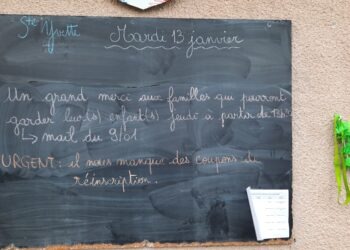 Ste Yvette
Mardi 13 janvier
Un grand merci aux familles qui pourront
garder leur(s) enfant(s) jeudi à partir de
↳ mail du 9/01
URGENT : il nous manque des coupons de
réinscription.